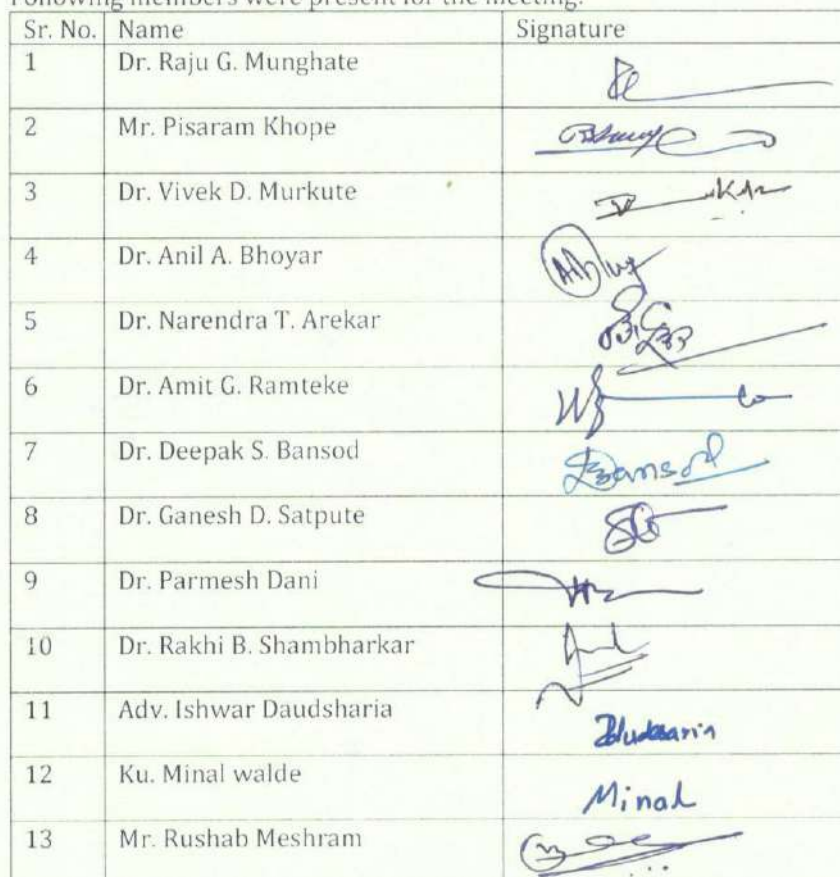 Following members were present for the meeting:
Sr. No. Name Signature
1 Dr. Raju G. Munghate
2 Mr. Pisaram Khope
3 Dr. Vivek D. Murkute
4 Dr. Anil A. Bhoyar
5 Dr. Narendra T. Arekar
6 Dr. Amit G. Ramteke
7 Dr. Deepak S. Bansod Bansod
8 Dr. Ganesh D. Satpute
9 Dr. Parmesh Dani
10 Dr. Rakhi B. Shambharkar
11 Adv. Ishwar Daudsharia
12 Ku. Minal walde Minal
13 Mr. Rushab Meshram